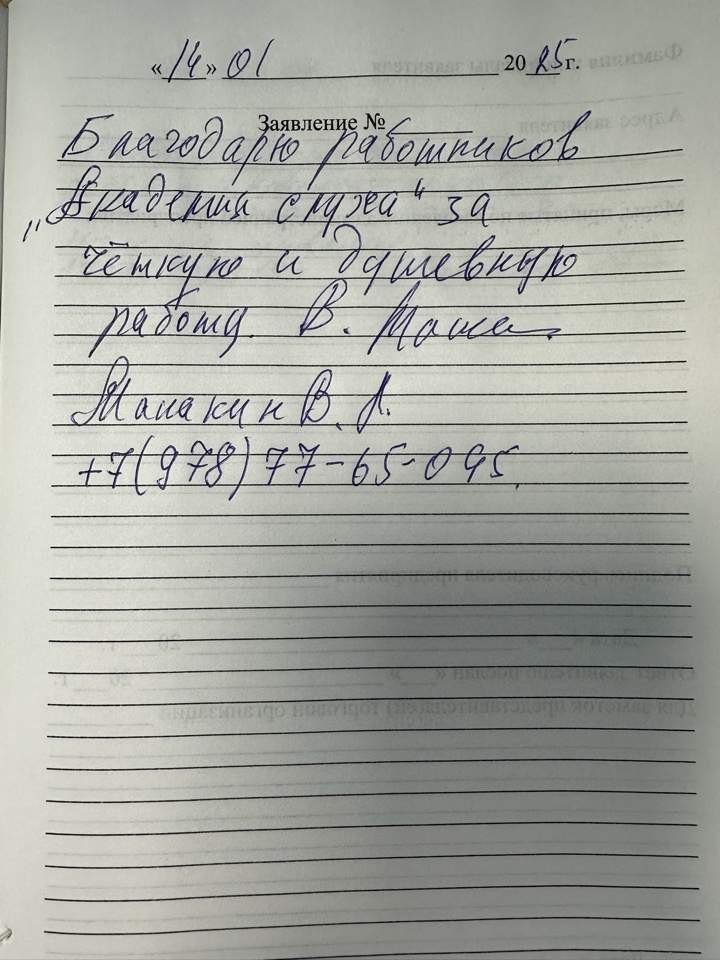 «14» 01 2025 г.
Заявление №
Благодарю работников
„Академия слуха“ за
чёткую и душевную
работу. В. Мала
Малакин В. Л.
+7(978)77-65-095.